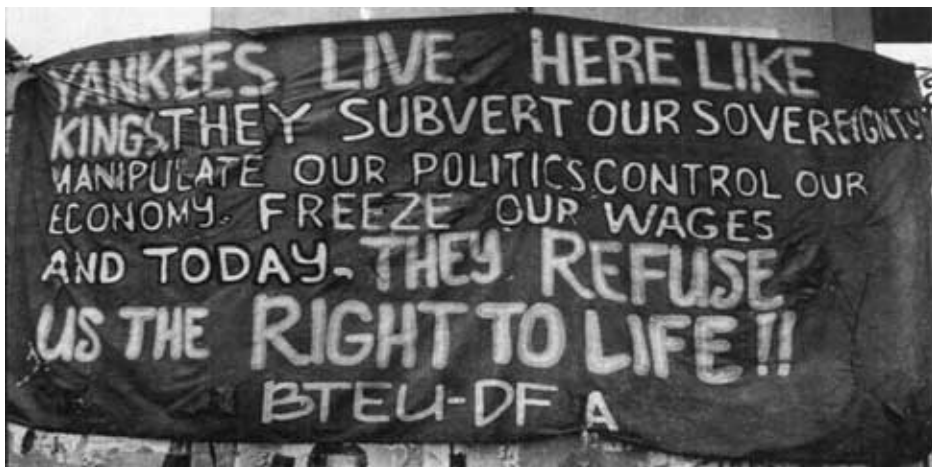 YANKEES LIVE HERE LIKE
KINGS, THEY SUBVERT OUR SOVEREIGNTY
MANIPULATE OUR POLITICS, CONTROL OUR
ECONOMY. FREEZE OUR WAGES
AND TODAY. THEY REFUSE
US THE RIGHT TO LIFE!!
BTEU-DFA